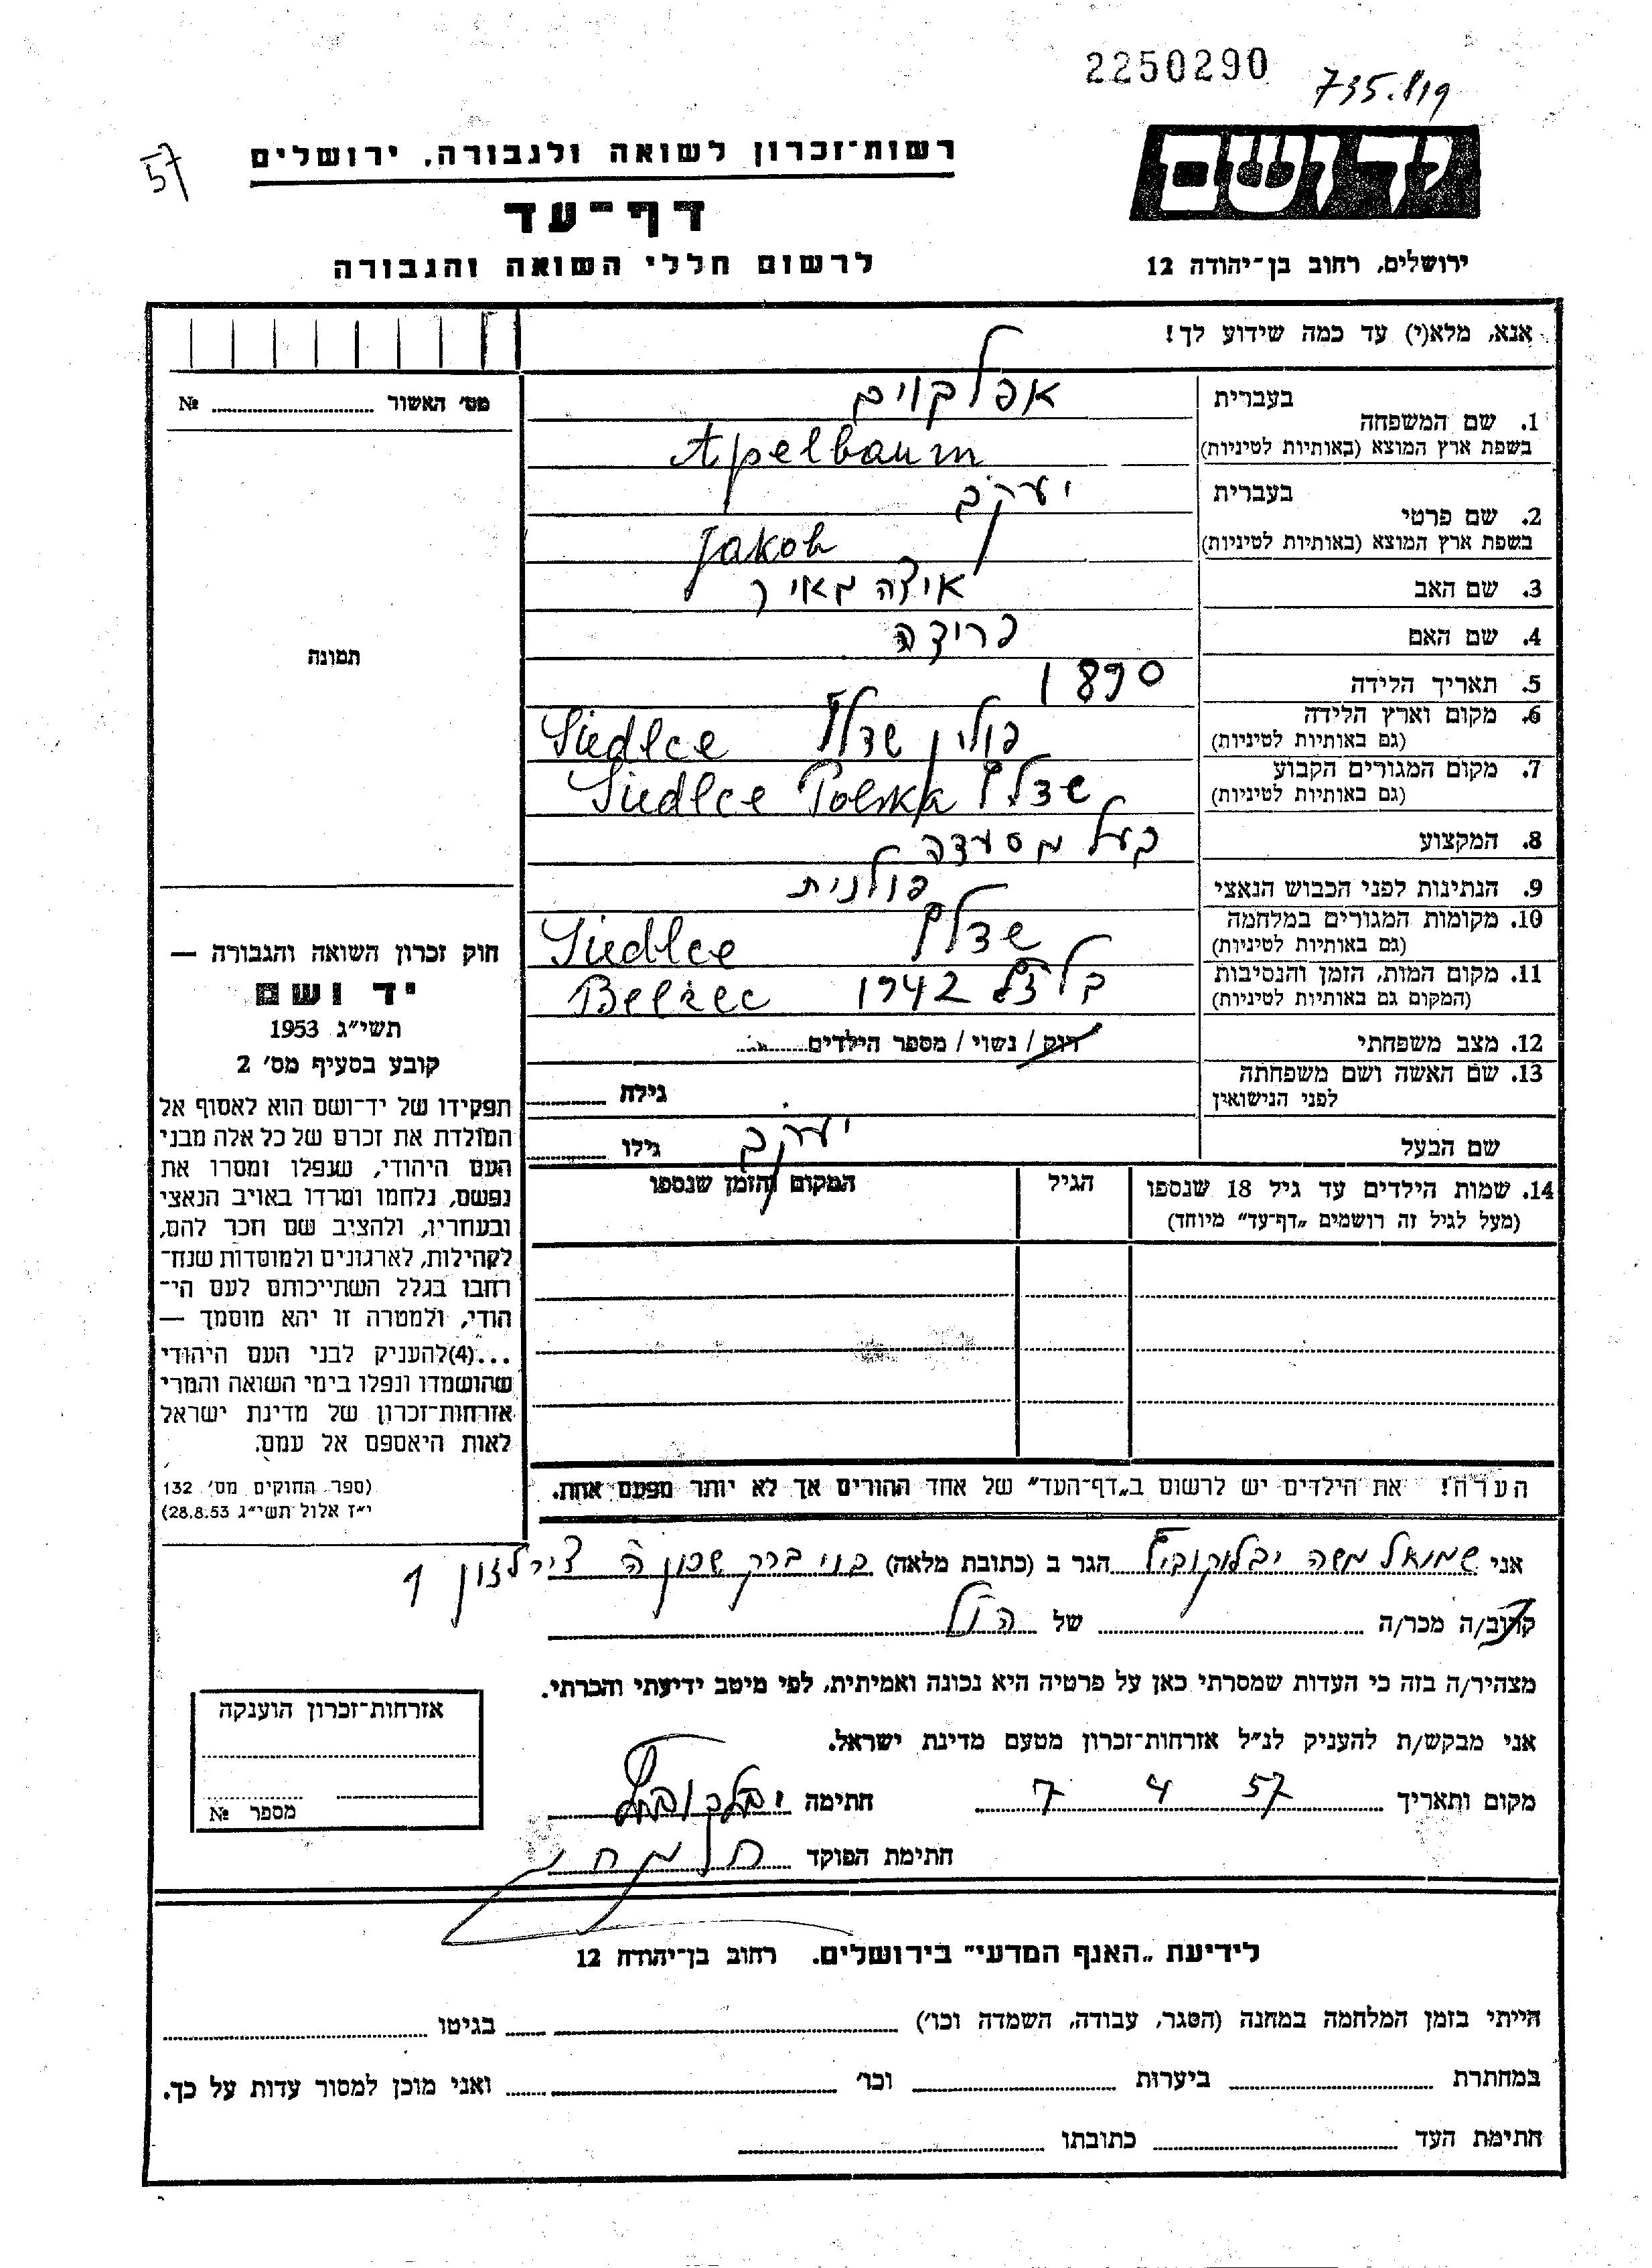 2250290
735.819
57
יד ושם
רשות־זכרון לשואה ולגבורה, ירושלים
דף־עד
לרשום חללי השואה והגבורה
ירושלים, רחוב בן־יהודה 12
אנא, מלא(י) עד כמה שידוע לך!
מס׳ האשור № ........
תמונה
1. שם המשפחה
בעברית
אפלבוים
בשפת ארץ המוצא (באותיות לטיניות)
Apelbaum
2. שם פרטי
בעברית
יעקב
בשפת ארץ המוצא (באותיות לטיניות)
Jakob
3. שם האב
איצה מאיר
4. שם האם
פריצה
5. תאריך הלידה
1890
6. מקום וארץ הלידה
(גם באותיות לטיניות)
פולין שדלץ Siedlce
7. מקום המגורים הקבוע
(גם באותיות לטיניות)
שדלץ Siedlce Polska
8. המקצוע
בעל מסעדה
9. הנתינות לפני הכבוש הנאצי
פולנית
10. מקומות המגורים במלחמה
(גם באותיות לטיניות)
שדלץ Siedlce
11. מקום המות, הזמן והנסיבות
(המקום גם באותיות לטיניות)
בלזץ 1942 Belzec
12. מצב משפחתי
רוק / נשוי / מספר הילדים........
13. שם האשה ושם משפחתה
לפני הנישואין
גילה ........
שם הבעל
יעקב
גילו ........
14. שמות הילדים עד גיל 18 שנספו
(מעל לגיל זה רושמים „דף־עד" מיוחד)
הגיל
המקום והזמן שנספו
חוק זכרון השואה והגבורה —
יד ושם
תשי״ג 1953
קובע בסעיף מס׳ 2
תפקידו של יד־ושם הוא לאסוף אל
המולדת את זכרם של כל אלה מבני
העם היהודי, שנפלו ומסרו את
נפשם, נלחמו ומרדו באויב הנאצי
ובעוזריו, ולהציב שם וזכר להם,
לקהילות, לארגונים ולמוסדות שנח־
רחבו בגלל השתייכותם לעם הי־
הודי, ולמטרה זו יהא מוסמך —
...(4)להעניק לבני העם היהודי
שהושמדו ונפלו בימי השואה והמרי
אזרחות־זכרון של מדינת ישראל
לאות היאספם אל עמם.
(ספר החוקים מס׳ 132
י״ז אלול תשי״ג 28.8.53)
הערה! את הילדים יש לרשום ב„דף־העד" של אחד ההורים אך לא יותר מפעם אחת.
אני שמואל משה יבלוקוביץ הגר ב (כתובת מלאה) בני ברק שכון ה צירלזון 1
קרוב/ה מכר/ה ........ של הנ״ל
מצהיר/ה בזה כי העדות שמסרתי כאן על פרטיה היא נכונה ואמיתית, לפי מיטב ידיעתי והכרתי.
אני מבקש/ת להעניק לנ״ל אזרחות־זכרון מטעם מדינת ישראל.
מקום ותאריך 7 4 57 חתימה יבלקוביץ
חתימת הפוקד
אזרחות־זכרון הוענקה
מספר №
לידיעת „האגף המדעי" בירושלים. רחוב בן־יהודה 12
הייתי בזמן המלחמה במחנה (הסגר, עבודה, השמדה וכו׳) ........ בגיטו ........
במחתרת ........ ביערות ........ וכו׳ ........ ואני מוכן למסור עדות על כך.
חתימת העד ........ כתובתו ........